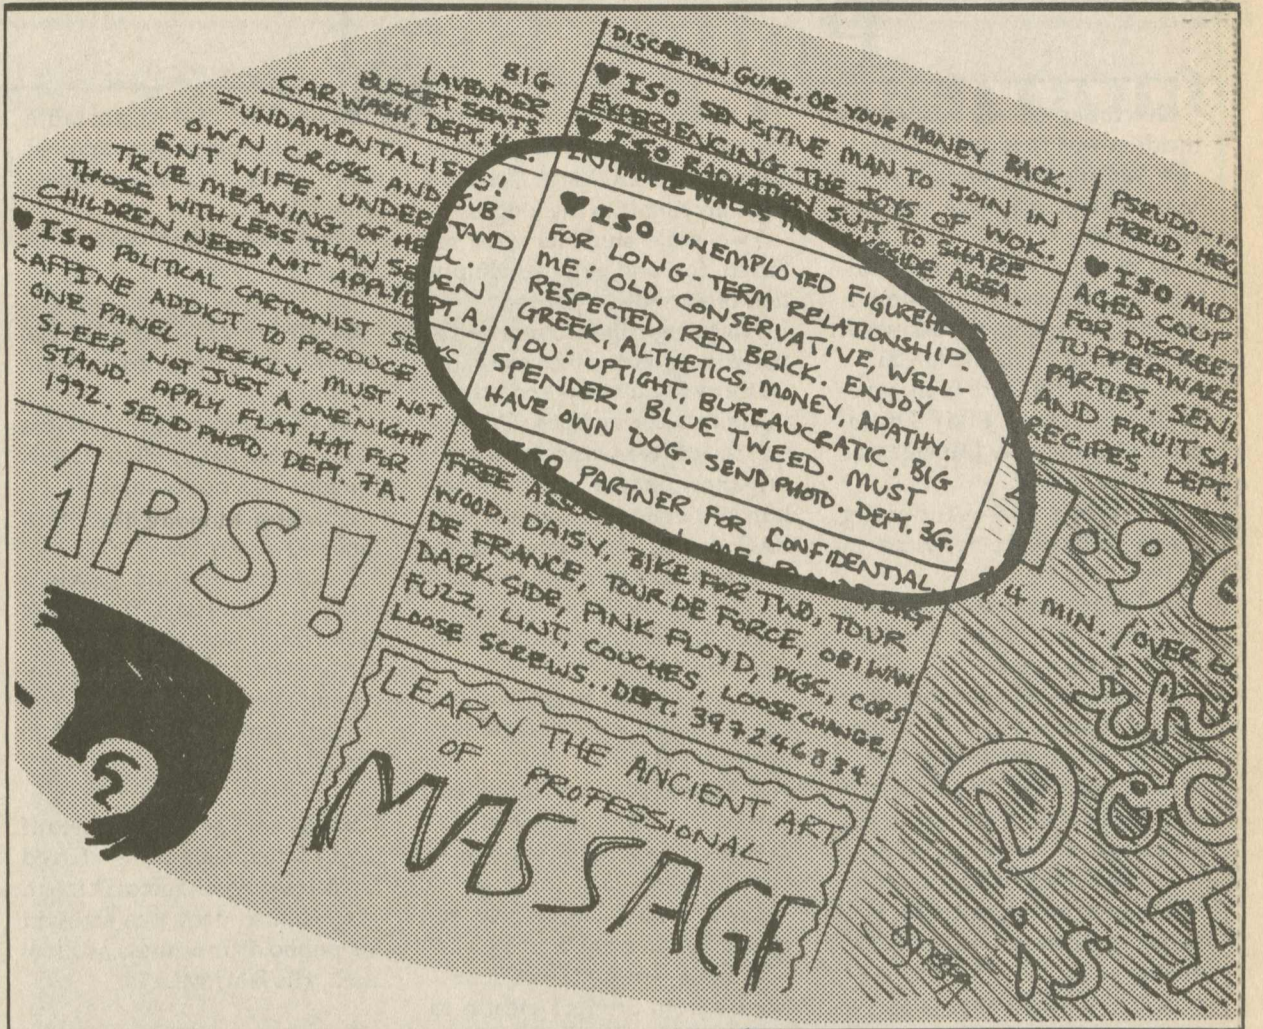 BIG
LAVENDER
BUCKET SEATS
CAR WASH. DEPT.
FUNDAMENTALISTS!
OWN CROSS AND SUB-
ENT WIFE. UNDERSTAND
TRUE MEANING OF HELL.
THOSE WITH LESS THAN SEVEN
CHILDREN NEED NOT APPLY DEPT. A.
♥ ISO POLITICAL CARTOONIST SEEKS
CAFFINE ADDICT TO PRODUCE
ONE PANEL WEEKLY. MUST NOT
SLEEP. NOT JUST A ONE NIGHT
STAND. APPLY FLAT HAT FOR
1992. SEND PHOTO. DEPT. 7A.
1PS!
DISCRETION GUAR. OR YOUR MONEY BACK.
♥ ISO SENSITIVE MAN TO JOIN IN
EXPERIENCING THE JOYS OF WOK.
♥ ISO RADIATION SUIT TO SHARE
INTIMATE WALKS IN AREA.
♥ ISO UNEMPLOYED FIGUREHEAD
FOR LONG-TERM RELATIONSHIP.
ME: OLD, CONSERVATIVE, WELL-
RESPECTED, RED BRICK. ENJOY
GREEK, ALTHETICS, MONEY, APATHY.
YOU: UPTIGHT, BUREAUCRATIC, BIG
SPENDER. BLUE TWEED. MUST
HAVE OWN DOG. SEND PHOTO. DEPT. 3G.
♥ ISO PARTNER FOR CONFIDENTIAL
FREE
WOOD, DAISY, BIKE FOR TWO, TOUR
DE FRANCE, TOUR DE FORCE, OBI WAN
DARK SIDE, PINK FLOYD, PIGS, COPS
FUZZ, LINT, COUCHES, LOOSE CHANGE
LOOSE SCREWS.. DEPT. 397246834
LEARN THE ANCIENT ART
OF PROFESSIONAL
MASSAGE
PSEUDO-IN
FREUD, HEG
♥ ISO MID
AGED COUP
FOR DISCREET
TUPPERWARE
PARTIES. SEND
AND FRUIT SA
RECIPES. DEPT.
1.90
4 MIN. / OVER
the
Doc
is I